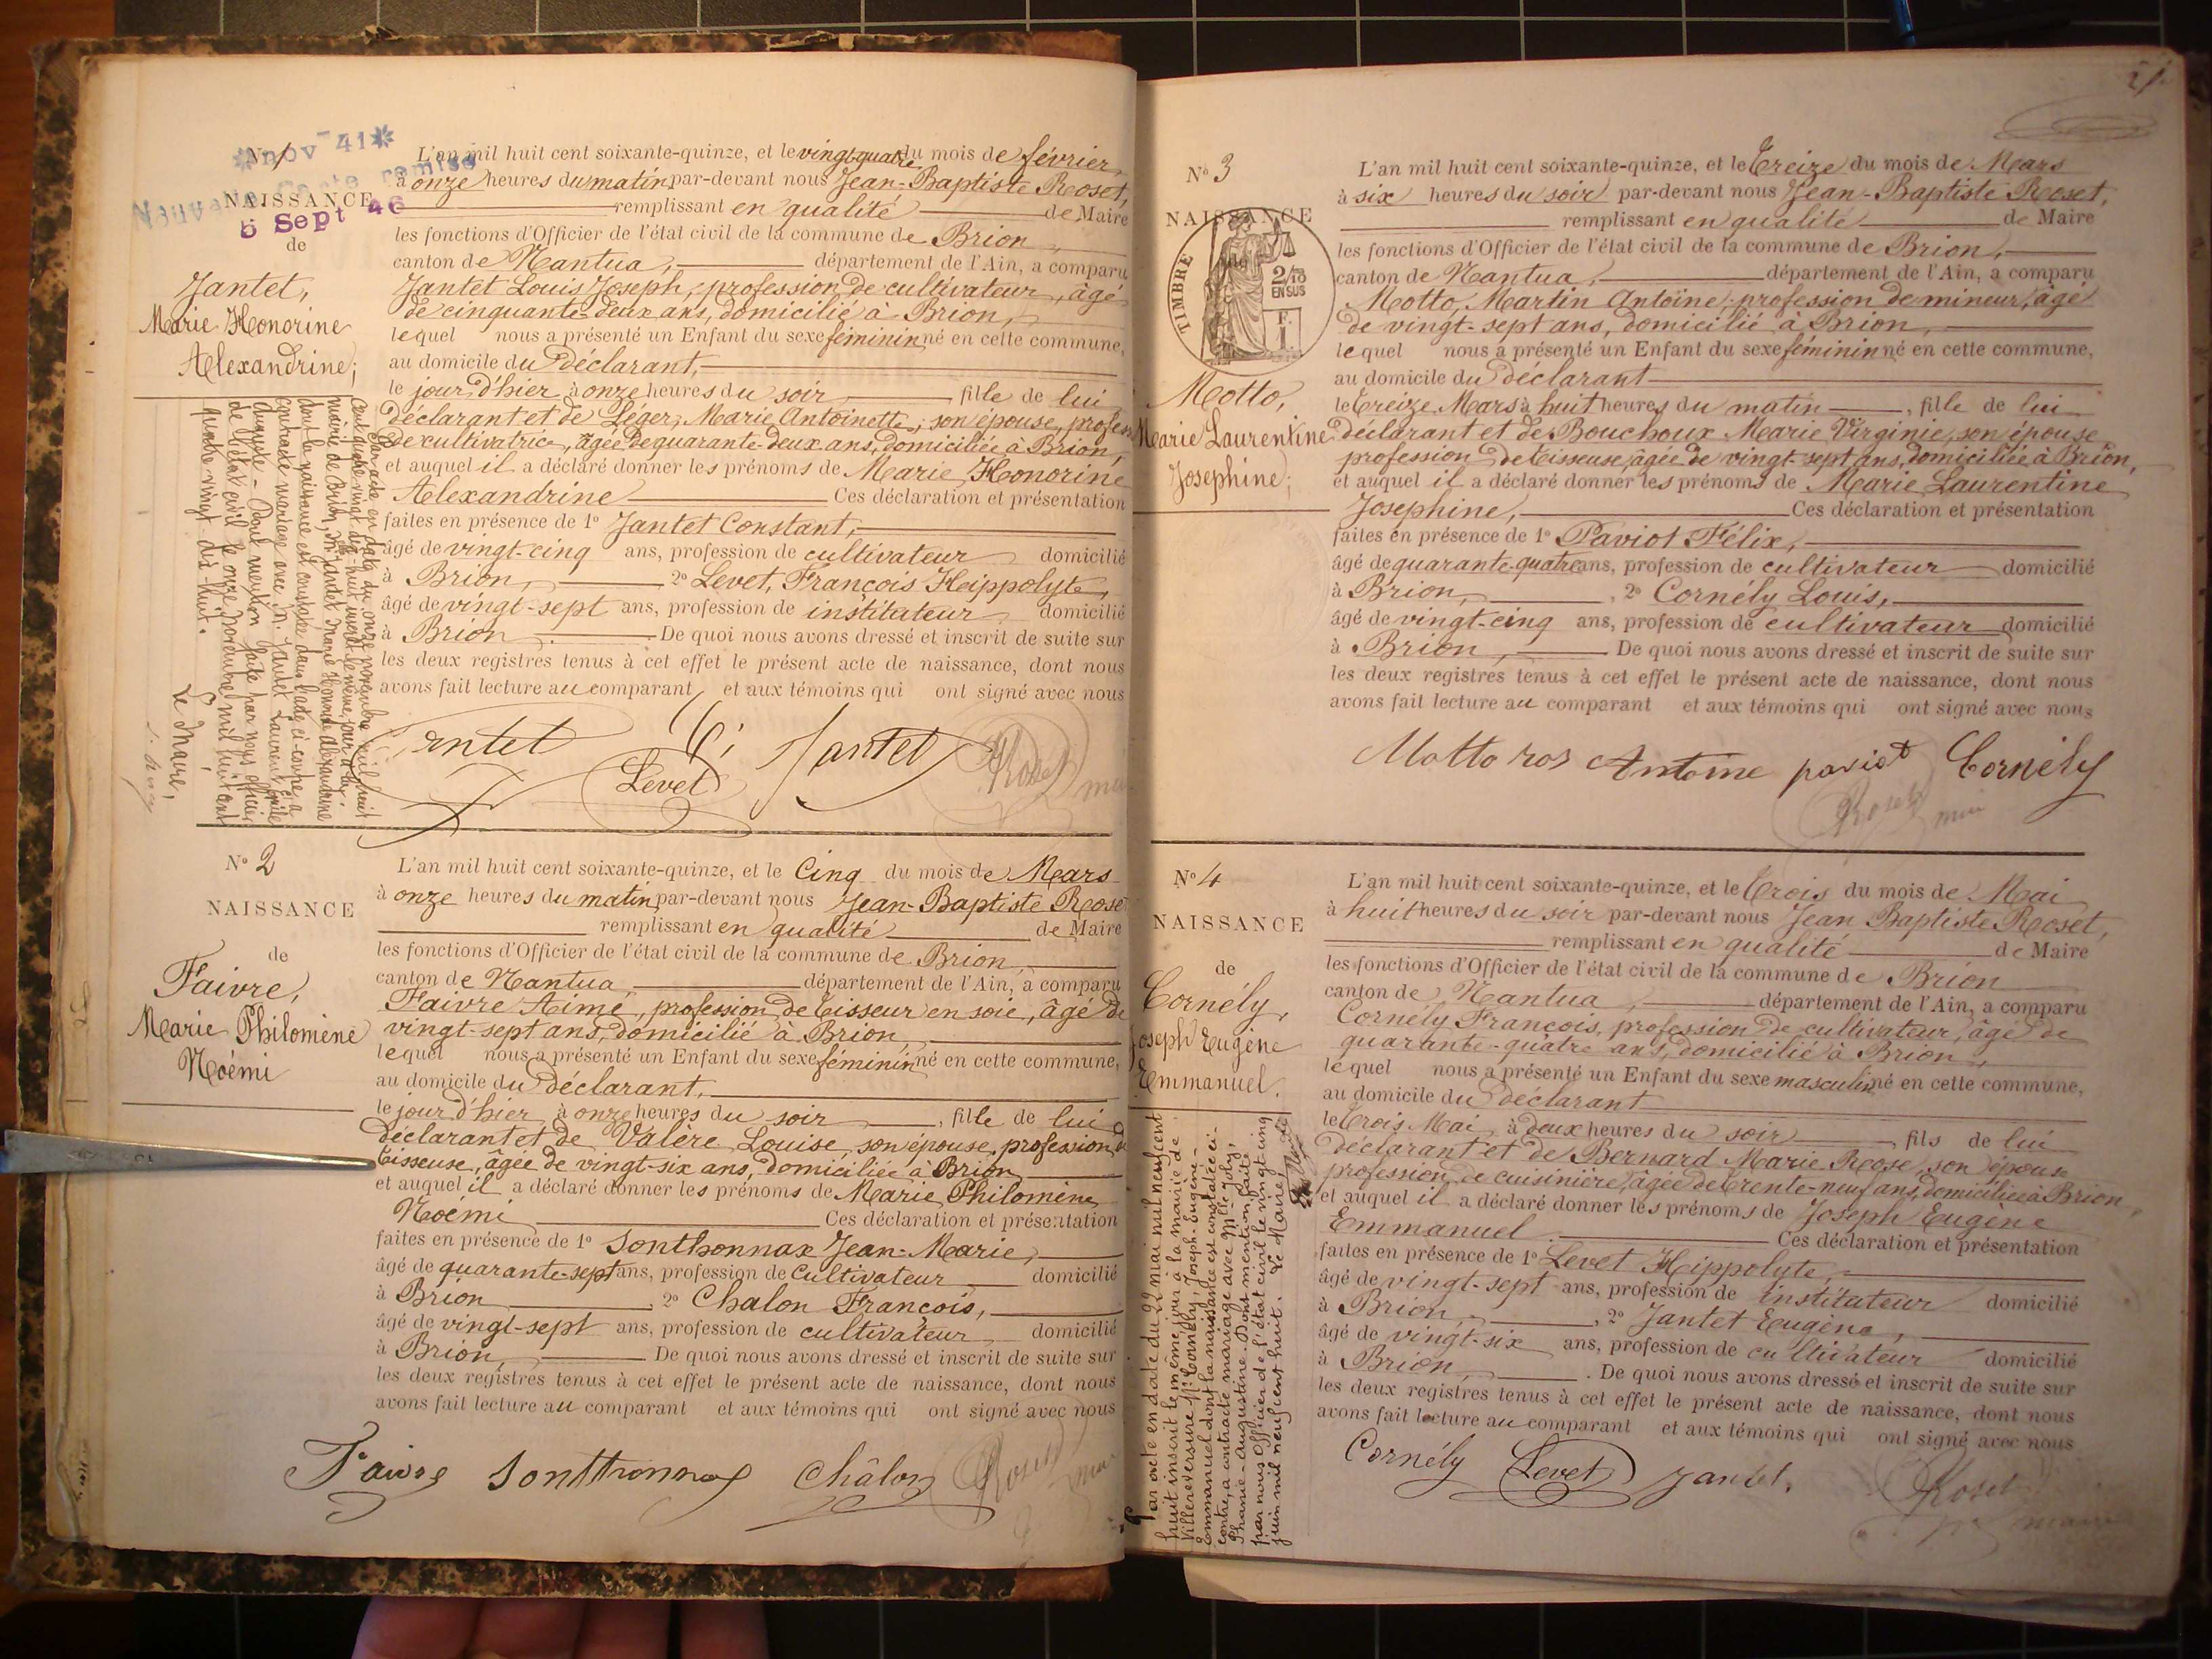 N° 1
nov 41
remise
NAISSANCE
5 Sept 46
de
Jantet,
Marie Honorine
Alexandrine;
L'an mil huit cent soixante-quinze, et le vingt-quatre du mois de février,
à onze heures du matin, par-devant nous Jean-Baptiste Roset,
remplissant en qualité de Maire
les fonctions d'Officier de l'état civil de la commune de Brion,
canton de Nantua, département de l'Ain, a comparu
Jantet Louis Joseph, profession de cultivateur, âgé
de cinquante-deux ans, domicilié à Brion,
lequel nous a présenté un Enfant du sexe féminin né en cette commune,
au domicile du déclarant,
le jour d'hier à onze heures du soir fille de lui
déclarant et de Léger, Marie Antoinette, son épouse, profess
de cultivatrice, âgée de quarante-deux ans, domiciliée à Brion,
et auquel il a déclaré donner les prénoms de Marie Honorine
Alexandrine Ces déclaration et présentation
faites en présence de 1° Jantet Constant,
âgé de vingt-cinq ans, profession de cultivateur domicilié
à Brion, 2° Levet, François Hippolyte,
âgé de vingt-sept ans, profession de instituteur domicilié
à Brion De quoi nous avons dressé et inscrit de suite sur
les deux registres tenus à cet effet le présent acte de naissance, dont nous
avons fait lecture au comparant, et aux témoins qui ont signé avec nous
Par acte en date du onze novembre mil huit
cent quatre vingt dix-huit inscrit le même jour à la
mairie de Brion, Jantet Marie Honorine Alexandrine
dont la naissance est constatée dans l'acte ci-contre, a
contracté mariage avec M. Jantet Laurent Émile
Auguste - Dont mention faite par nous officier
de l'état civil le onze novembre mil huit cent
quatre vingt dix-huit.
Le Maire,
Jantet
Levet
Jantet
Roset
N° 2
NAISSANCE
de
Faivre,
Marie Philomène
Noémi
L'an mil huit cent soixante-quinze, et le Cinq du mois de Mars
à onze heures du matin, par-devant nous Jean-Baptiste Roset
remplissant en qualité de Maire
les fonctions d'Officier de l'état civil de la commune de Brion,
canton de Nantua, département de l'Ain, a comparu
Faivre Aimé, profession de tisseur en soie, âgé de
vingt-sept ans, domicilié à Brion,
lequel nous a présenté un Enfant du sexe féminin né en cette commune,
au domicile du déclarant,
le jour d'hier, à onze heures du soir, fille de lui
déclarant et de Valère Louise, son épouse, profession de
tisseuse, âgée de vingt-six ans, domiciliée à Brion
et auquel il a déclaré donner les prénoms de Marie Philomène
Noémi Ces déclaration et présentation
faites en présence de 1° Sonthonnax Jean-Marie,
âgé de quarante-sept ans, profession de Cultivateur domicilié
à Brion 2° Chalon François,
âgé de vingt-sept ans, profession de cultivateur domicilié
à Brion, De quoi nous avons dressé et inscrit de suite sur
les deux registres tenus à cet effet le présent acte de naissance, dont nous
avons fait lecture au comparant et aux témoins qui ont signé avec nous
Faivre Sonthonnax Châlon Roset maire
N° 3
NAISSANCE
de
TIMBRE
2/10
EN SUS
F.
1.
Motto,
Marie Laurentine
Josephine;
L'an mil huit cent soixante-quinze, et le treize du mois de Mars
à six heures du soir par-devant nous Jean-Baptiste Roset,
remplissant en qualité de Maire
les fonctions d'Officier de l'état civil de la commune de Brion,
canton de Nantua, département de l'Ain, a comparu
Motto, Martin Antoine, profession de mineur, âgé
de vingt-sept ans, domicilié à Brion,
lequel nous a présenté un Enfant du sexe féminin né en cette commune,
au domicile du déclarant
le treize Mars à huit heures du matin, fille de lui
déclarant et de Bouchoux Marie Virginie, son épouse,
profession de tisseuse, âgée de vingt-sept ans, domiciliée à Brion,
et auquel il a déclaré donner les prénoms de Marie Laurentine
Josephine, Ces déclaration et présentation
faites en présence de 1° Paviot Félix,
âgé de quarante-quatre ans, profession de cultivateur domicilié
à Brion, 2° Cornély Louis,
âgé de vingt-cinq ans, profession de cultivateur domicilié
à Brion, De quoi nous avons dressé et inscrit de suite sur
les deux registres tenus à cet effet le présent acte de naissance, dont nous
avons fait lecture au comparant et aux témoins qui ont signé avec nous
Motto ros Antoine paviot Cornély
Roset
N° 4
NAISSANCE
de
Cornély,
Joseph Eugène
Emmanuel.
L'an mil huit cent soixante-quinze, et le trois du mois de Mai
à huit heures du soir par-devant nous Jean Baptiste Roset,
remplissant en qualité de Maire
les fonctions d'Officier de l'état civil de la commune de Brion
canton de Nantua, département de l'Ain, a comparu
Cornély François, profession de cultivateur, âgé de
quarante-quatre ans, domicilié à Brion,
lequel nous a présenté un Enfant du sexe masculin né en cette commune,
au domicile du déclarant
le trois Mai, à deux heures du soir fils de lui
déclarant et de Bernard Marie Rose, son épouse
profession de cuisinière, âgée de trente-neuf ans, domiciliée à Brion,
et auquel il a déclaré donner les prénoms de Joseph Eugène
Emmanuel Ces déclaration et présentation
faites en présence de 1° Levet Hippolyte,
âgé de vingt-sept ans, profession de instituteur domicilié
à Brion, 2° Jantet Eugène,
âgé de vingt-six ans, profession de cultivateur domicilié
à Brion, . De quoi nous avons dressé et inscrit de suite sur
les deux registres tenus à cet effet le présent acte de naissance, dont nous
avons fait lecture au comparant et aux témoins qui ont signé avec nous
Par acte en date du 22 mai mil neuf cent
huit inscrit le même jour à la mairie de
Villereversure, Mr Cornély, Joseph-Eugène-
Emmanuel dont la naissance est constatée ci-
contre, a contracté mariage avec Mlle Joly,
Phanie-Augustine. Dont mention faite
par nous Officier de l'état civil le vingt-cinq
juin mil neuf cent huit. Le Maire,
Cornély Levet Jantet.
Roset
maire